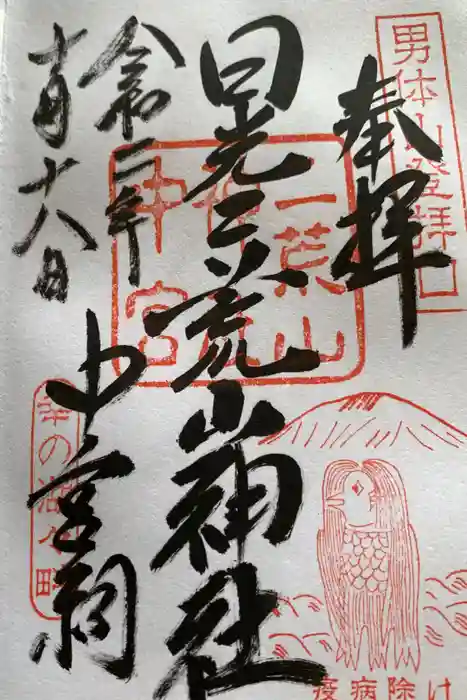 男体山登拝口
奉拝
日光二荒山神社
中宮祠
二荒山
神社
中宮
令和二年
十月十八日
幸の湖
疫病除け